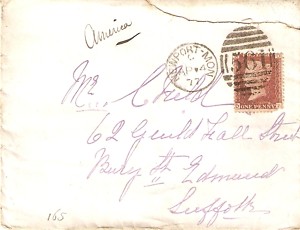 America
NEWPORT-MON
C
AP 4
77
561
ONE PENNY
Mr. Child
62 Guildhall Street
Bury St Edmund
Suffolk
165